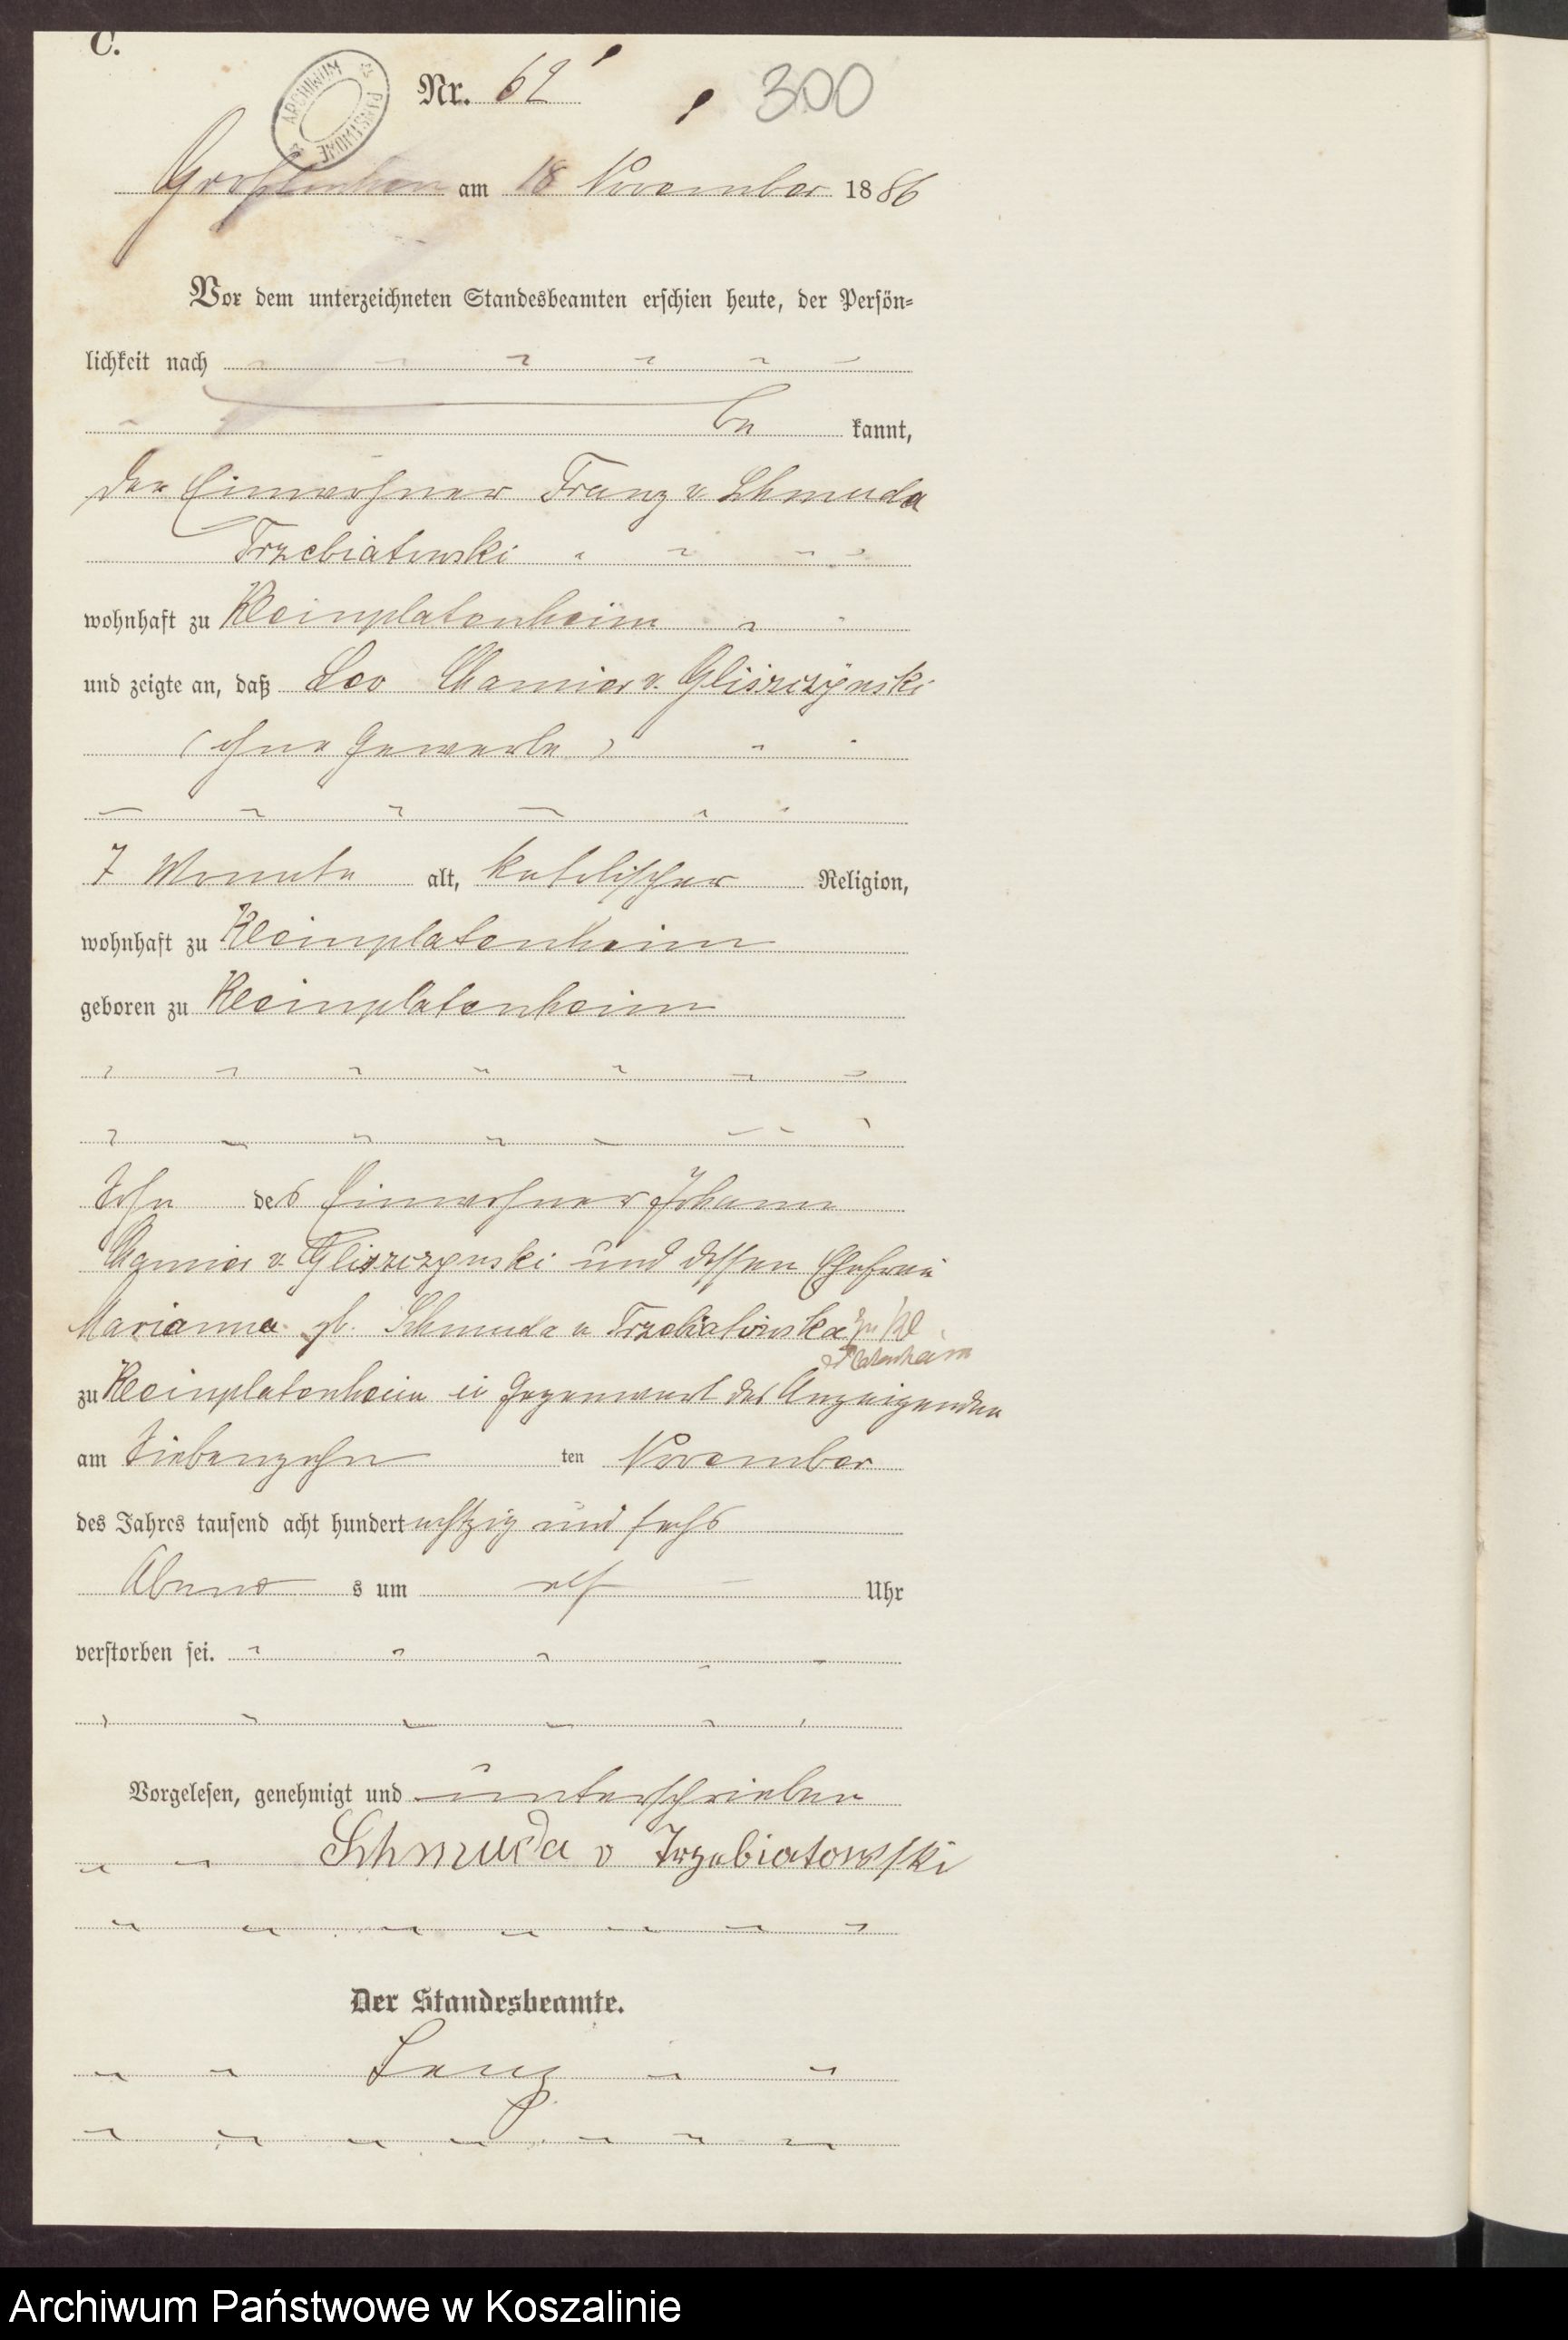 C.
ARCHIWUM PAŃSTWOWE
Nr. 62
300
am 18 November 1886
Vor dem unterzeichneten Standesbeamten erschien heute, der Persön-
lichkeit nach
be kannt,
der Einwohner Franz v. Schmuda
Trzebiatowski
wohnhaft zu Kleinplatenheim
und zeigte an, daß Leo Chamier v. Gliszczynski
(ohne Gewerbe)
7 Monate alt, katolischer Religion,
wohnhaft zu Kleinplatenheim
geboren zu Kleinplatenheim
Sohn des Einwohner Johann
Chamier v. Gliszczynski und dessen Ehefrau
Marianna gb. Schmuda v Trzebiatowska zu Kl
Platenheim
zu Kleinplatenheim in Gegenwart des Anzeigenden
am Siebenzehn ten November
des Jahres tausend acht hundert achtzig und sechs
Abend s um elf Uhr
verstorben sei.
Vorgelesen, genehmigt und unterschrieben
Schmuda v Trzebiatowski
Der Standesbeamte.
Lenz
Archiwum Państwowe w Koszalinie